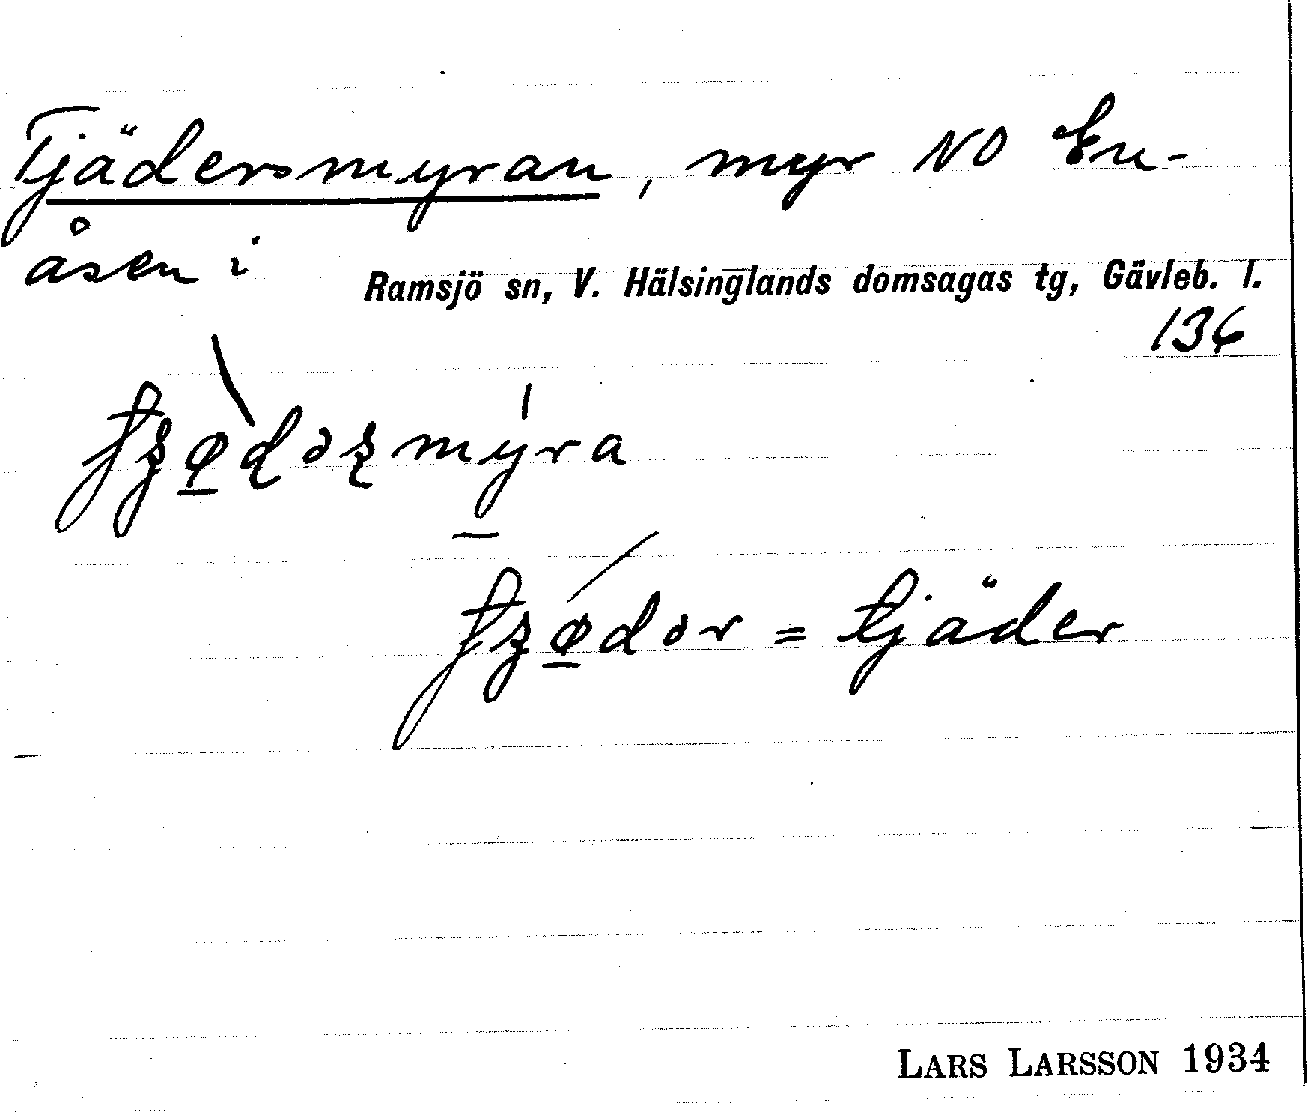 Tjädersmyran, myr NO En-
åsen i
Ramsjö sn, V. Hälsinglands domsagas tg, Gävleb. l.
136
= tjäder
LARS LARSSON 1934